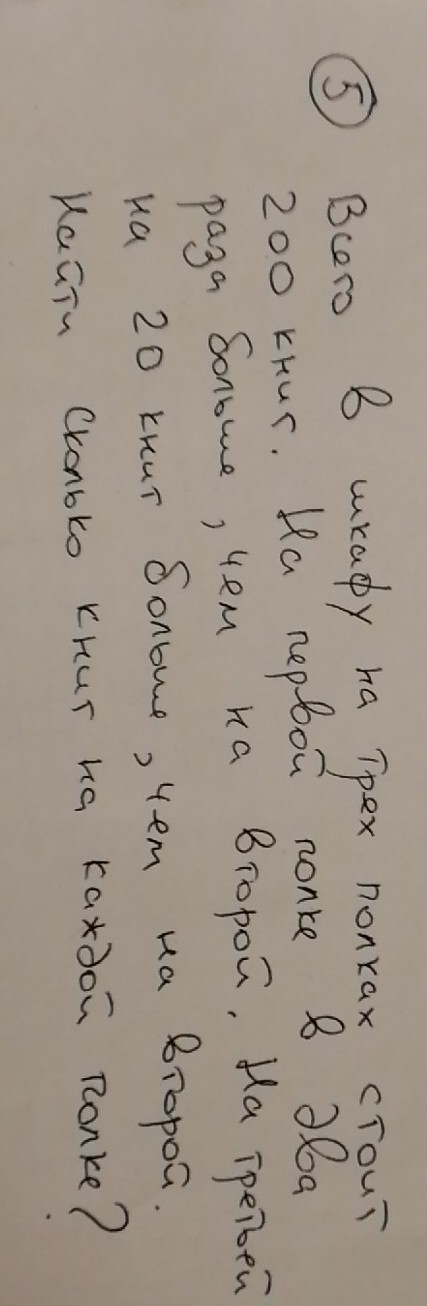 5 Всего в шкафу на трех полках стоит
200 книг. На первой полке в два
раза больше, чем на второй. На третьей
на 20 книг больше, чем на второй.
Найти сколько книг на каждой полке?